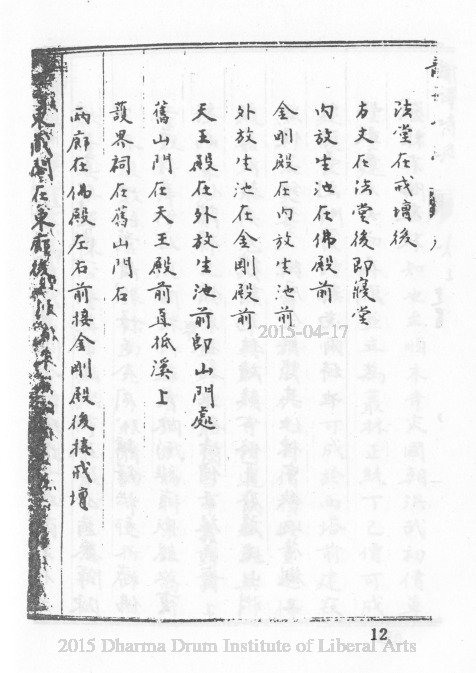 法堂在戒壇後
方丈在法堂後即寢堂
內放生池在佛殿前
金剛殿在內放生池前
外放生池在金剛殿前
天王殿在外放生池前即山門處
舊山門在天王殿前直抵溪上
護界祠在舊山門右
兩廊在佛殿左右前接金剛殿後接戒壇
東藏閣在東廊後
2015-04-17
12
2015 Dharma Drum Institute of Liberal Arts